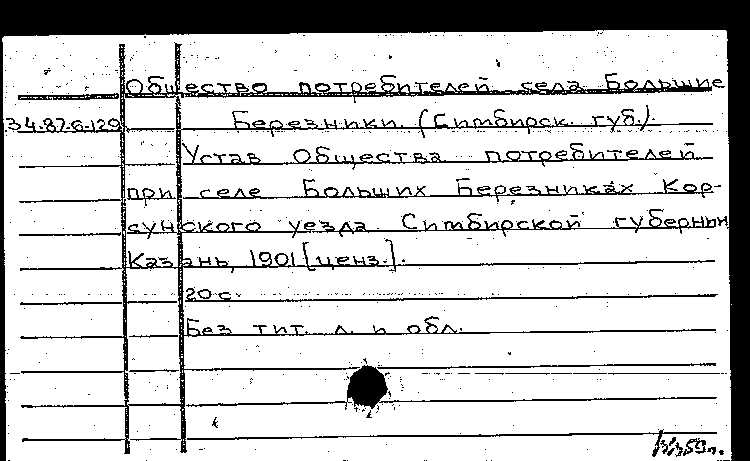 Общество потребителей села Большие
34.87.6.129 Березники. (Симбирск. губ.).
Устав Общества потребителей
при селе Больших Березниках Кор-
сунского уезда Симбирской губернии
Казань, 1901 [ценз.].
20 с.
Без тит. л. и обл.